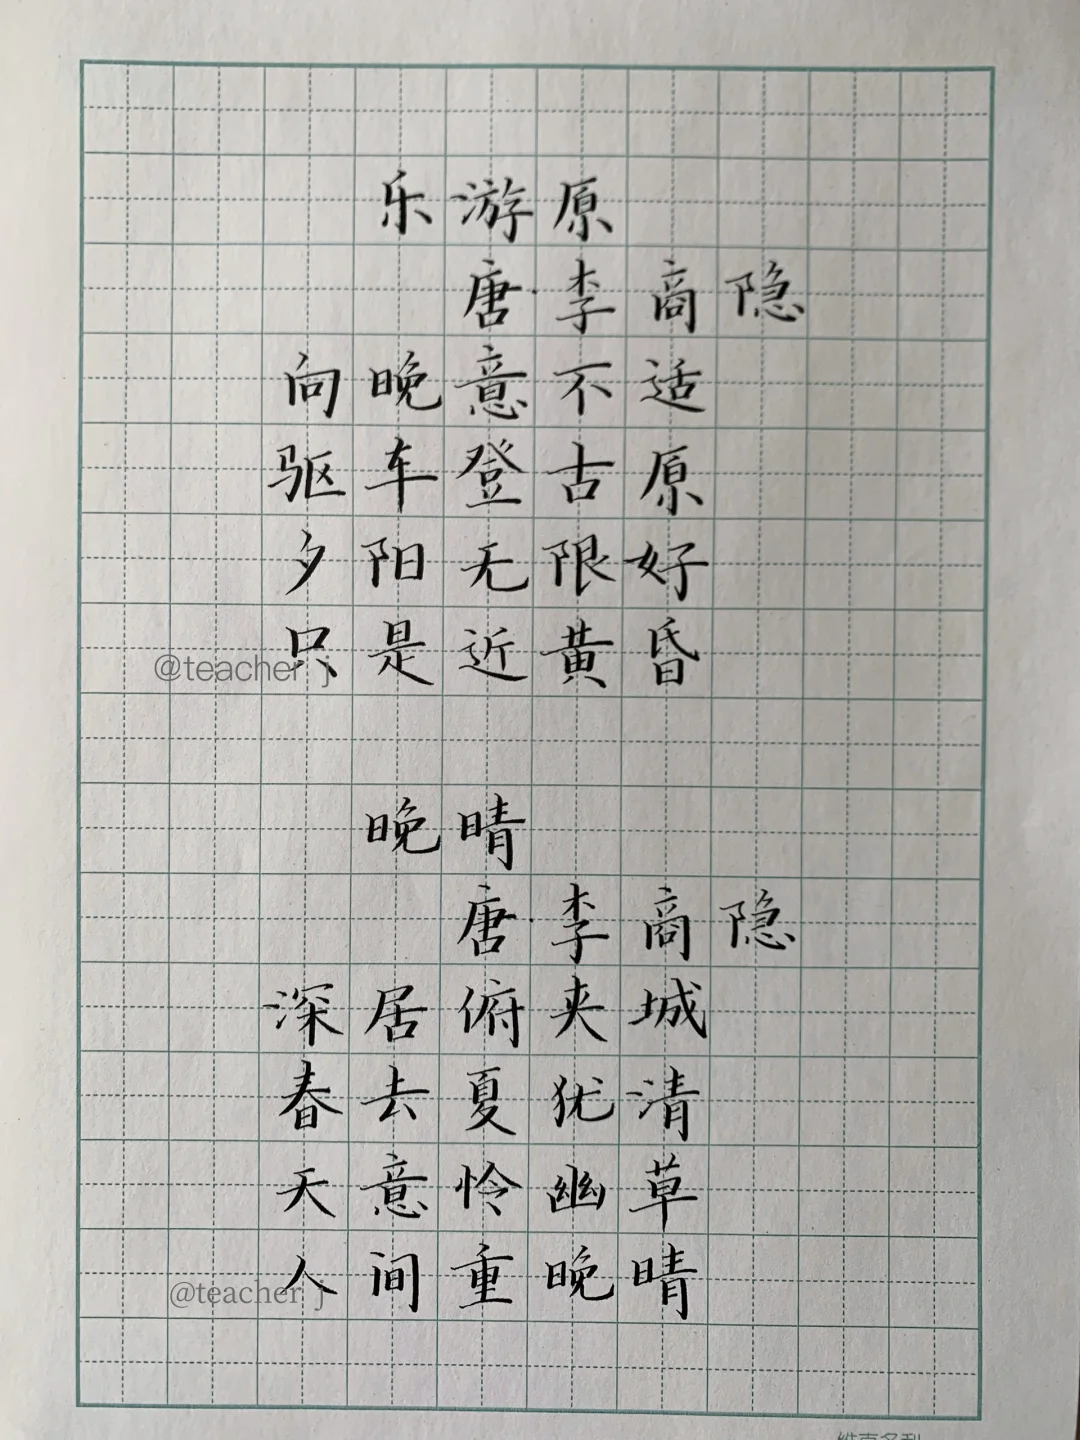 乐游原
唐·李商隐
向晚意不适
驱车登古原
夕阳无限好
只是近黄昏
@teacher j
晚晴
唐·李商隐
深居俯夹城
春去夏犹清
天意怜幽草
人间重晚晴
@teacher j